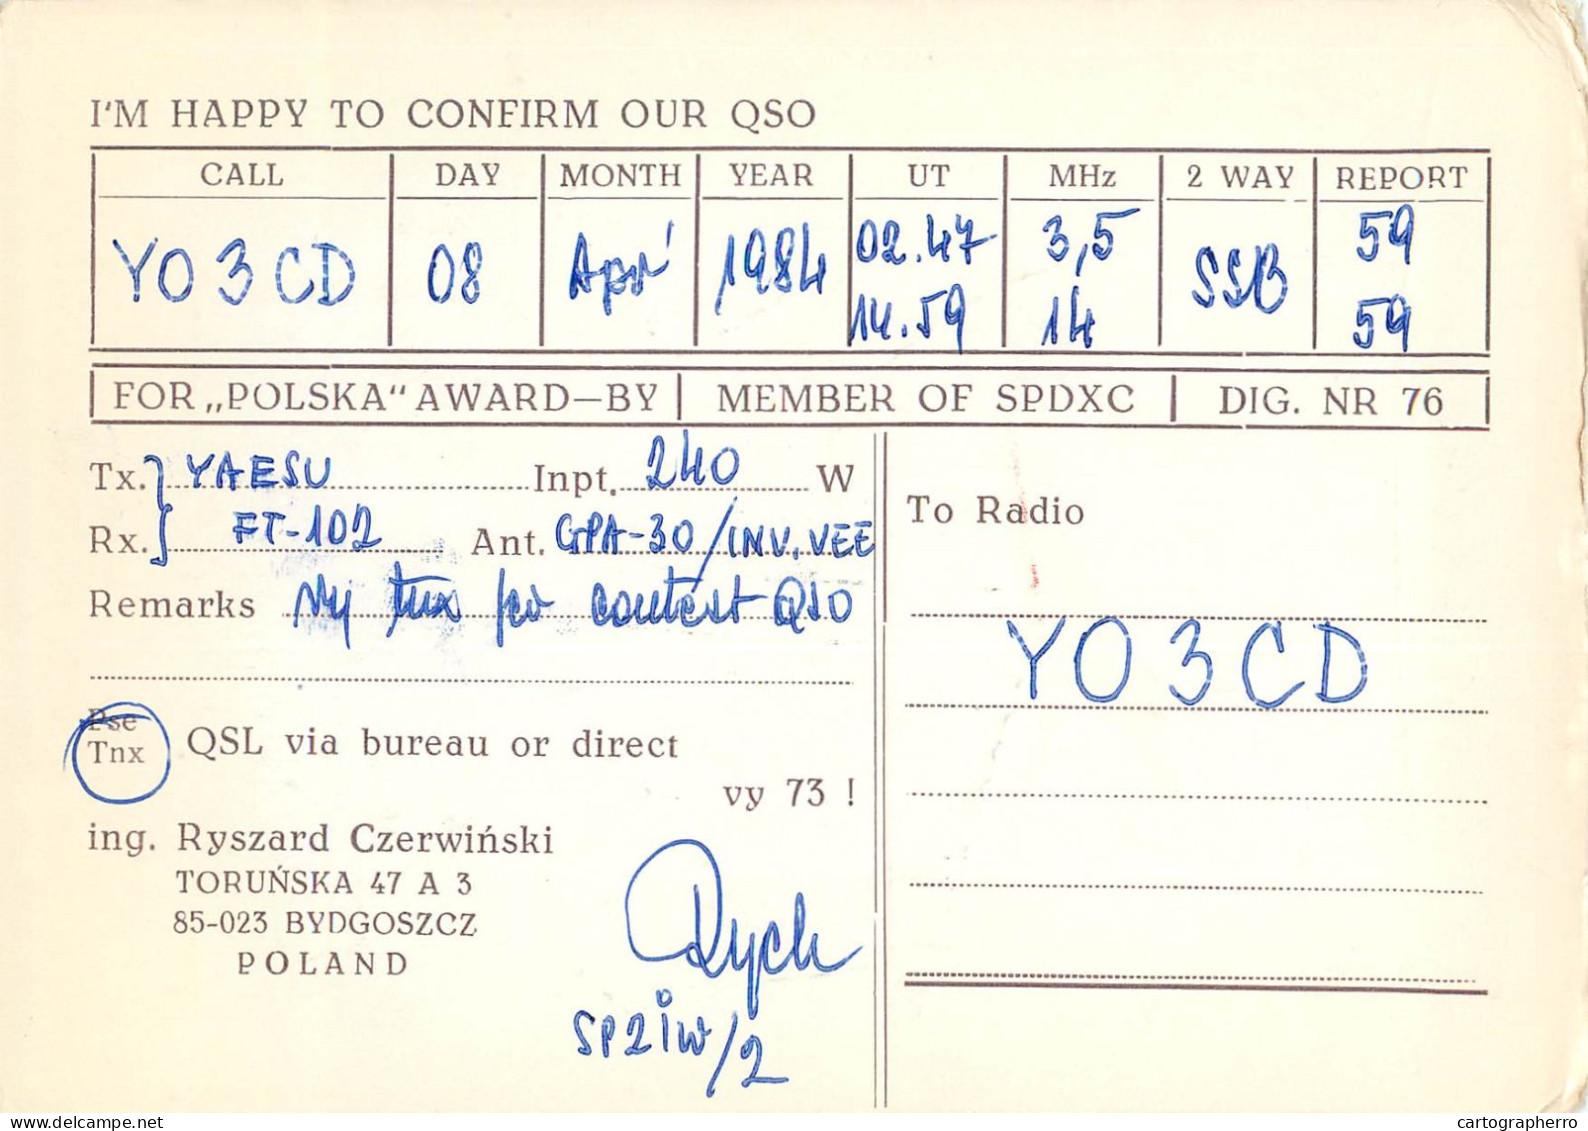 I'M HAPPY TO CONFIRM OUR QSO
CALL DAY MONTH YEAR UT MHz 2 WAY REPORT
YO3CD 08 Apr 1984 02.47 3,5 SSB 59
14.59 14 59
FOR „POLSKA" AWARD—BY MEMBER OF SPDXC DIG. NR 76
Tx. YAESU Inpt. 240 W
Rx. FT-102 Ant. GPA-30/INV. VEE
Remarks My tnx for contest QSO
Pse
Tnx QSL via bureau or direct
vy 73 !
ing. Ryszard Czerwiński
TORUŃSKA 47 A 3
85-023 BYDGOSZCZ
POLAND
Rych
SP2IW/2
To Radio
YO3CD
www.delcampe.net
cartographerro